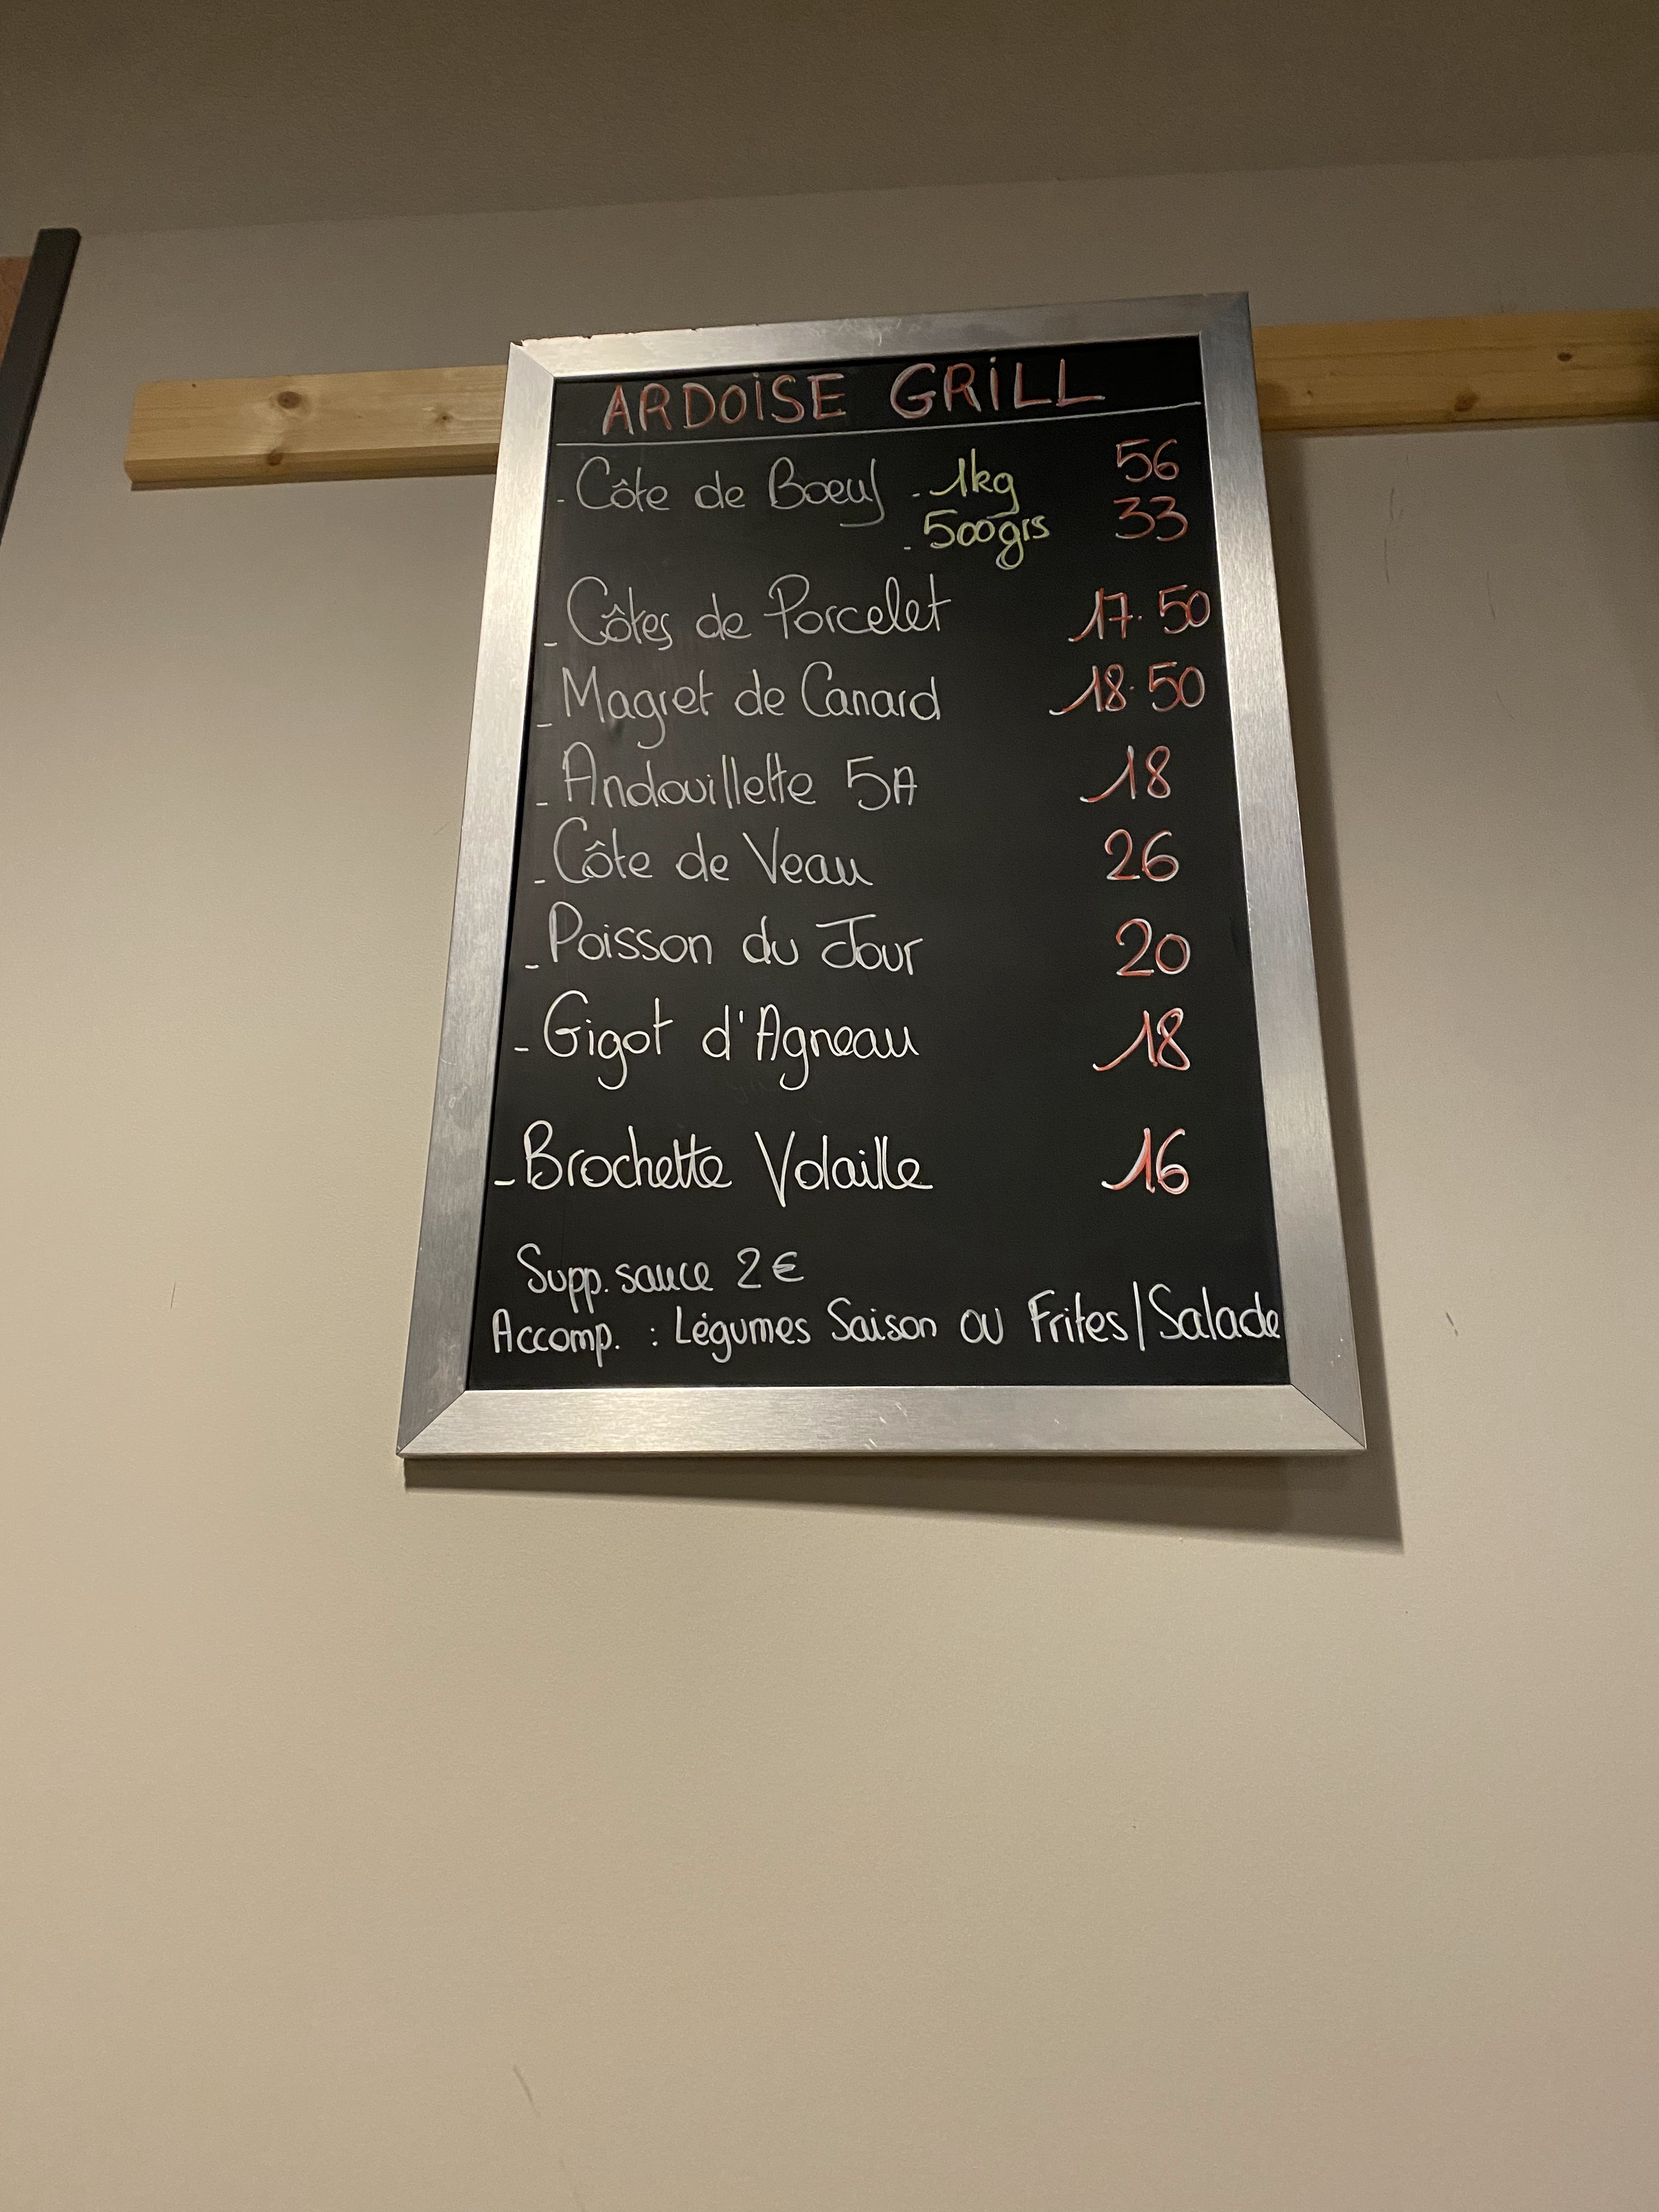 ARDOISE GRILL
- Côte de Boeuf - 1kg 56
- 500grs 33
- Côtes de Porcelet 17.50
- Magret de Canard 18.50
- Andouillette 5A 18
- Côte de Veau 26
- Poisson du Jour 20
- Gigot d'Agneau 18
- Brochette Volaille 16
Supp. sauce 2€
Accomp. : Légumes Saison ou Frites/Salade